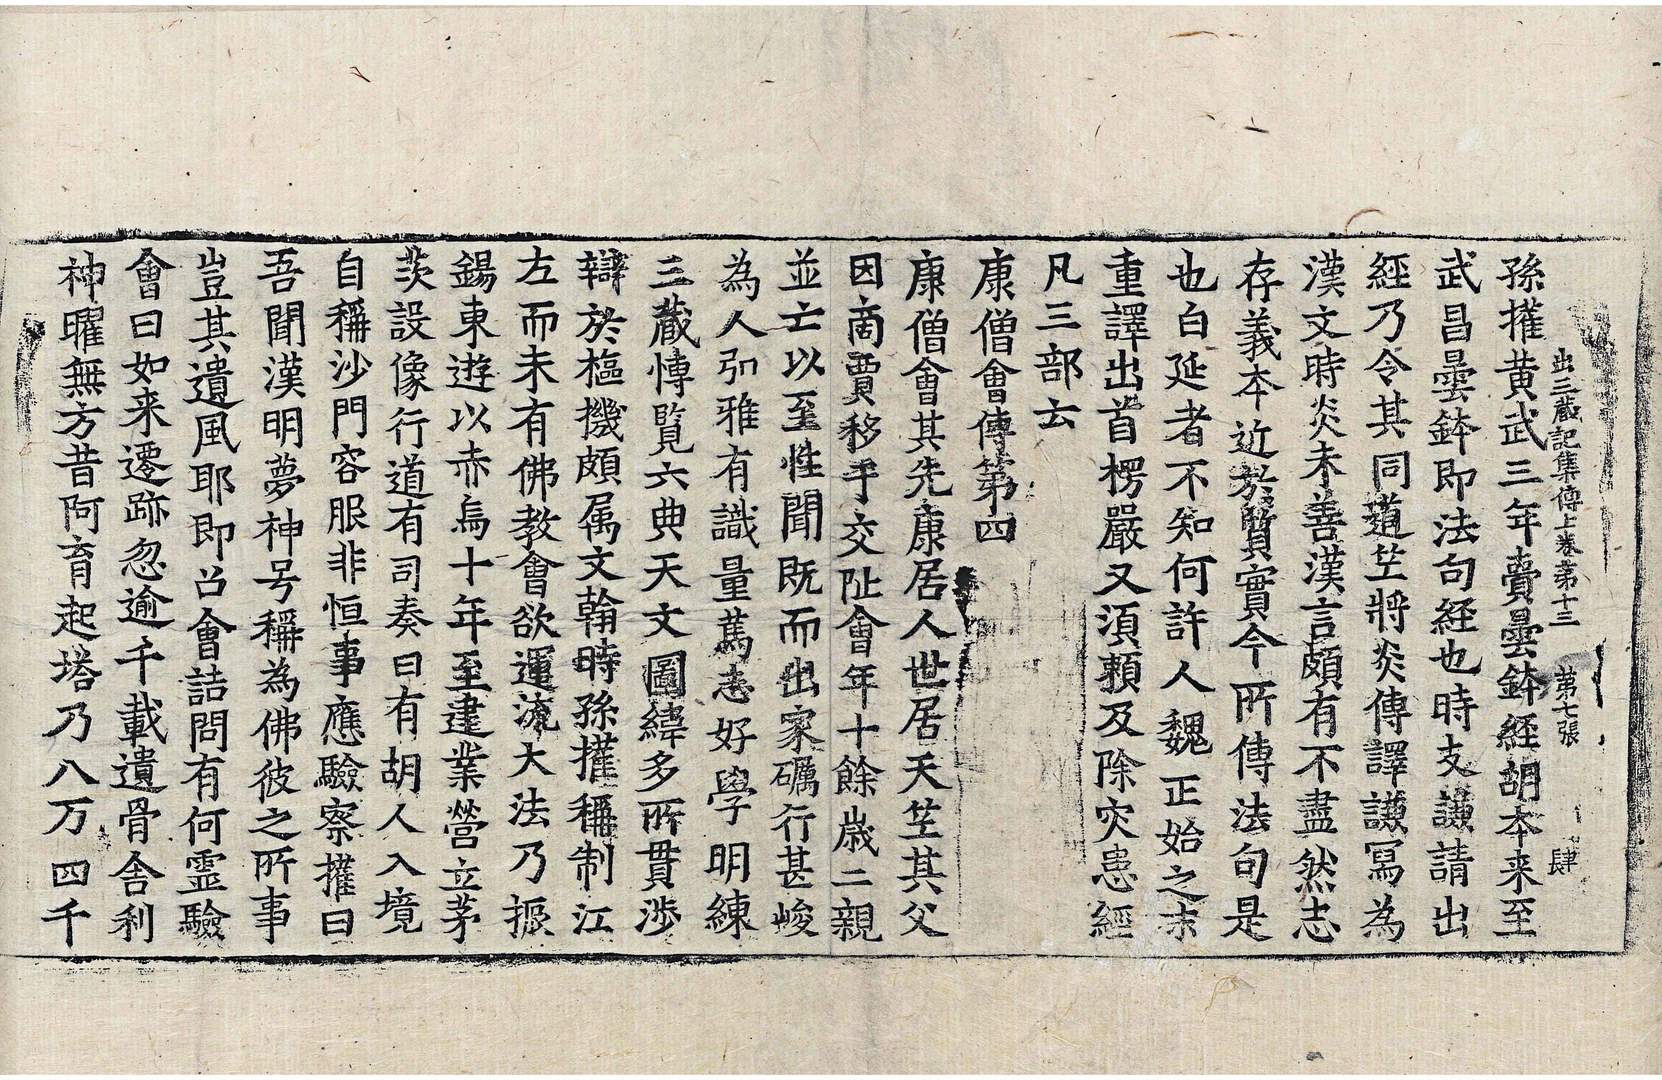 出三蔵記集傳上卷第十三 第七張 肆
孫擁黄武三年賷曇鉢經胡本来至
武昌曇鉢即法句經也時支謙請出
經乃令其同道竺將炎傳譯謙冩為
漢文時炎未善漢言頗有不盡然志
存義本近於質實今所傳法句是
也白延者不知何許人魏正始之末
重譯出首楞嚴又湏頼及除灾患經
凡三部云
康僧會傳第四
康僧會其先康居人世居天竺其父
因商賈移于交阯會年十餘歳二親
並亡以至性聞既而出家礪行甚峻
為人弘雅有識量萬志好學明練
三蔵愽覧六典天文圖緯多所貫渉
辯於樞機頗属文翰時孫擁稱制江
左而未有佛教會欲運流大法乃振
錫東遊以赤烏十年至建業營立茅
茨設像行道有司奏曰有胡人入境
自稱沙門容服非恒事應驗察擁曰
吾聞漢明夢神号稱為佛彼之所事
豈其遺風耶即召會詰問有何霊驗
會曰如来遷跡忽逾千載遺骨舎利
神曜無方昔阿育起塔乃八万四千